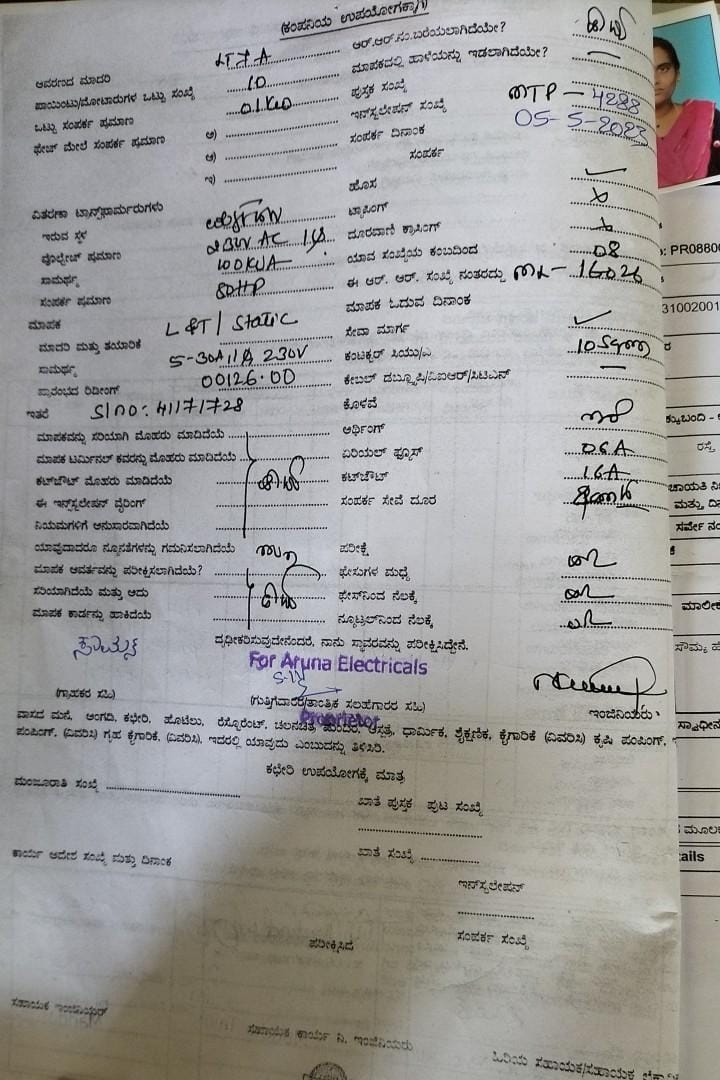 (ಕಂಪನಿಯ ಉಪಯೋಗಕ್ಕಾಗಿ)
ಆವರಣದ ಮಾದರಿ LT7A
ಪಾಯಿಂಟು/ಮೋಟಾರುಗಳ ಒಟ್ಟು ಸಂಖ್ಯೆ 10
ಒಟ್ಟು ಸಂಪರ್ಕ ಪ್ರಮಾಣ 01KW
ಫೇಜ್ ಮೇಲೆ ಸಂಪರ್ಕ ಪ್ರಮಾಣ ಅ)
ಆ)
ಇ)
ವಿತರಣಾ ಟ್ರಾನ್ಸ್‌ಫಾರ್ಮರುಗಳು
ಇರುವ ಸ್ಥಳ
ವೊಲ್ಟೇಜ್ ಪ್ರಮಾಣ 230V AC 1φ
ಸಾಮರ್ಥ್ಯ 100KVA
ಸಂಪರ್ಕ ಪ್ರಮಾಣ 80HP
ಮಾಪಕ
ಮಾದರಿ ಮತ್ತು ತಯಾರಿಕೆ L&T/Static
ಸಾಮರ್ಥ್ಯ 5-30A 1φ 230V
ಪ್ರಾರಂಭದ ರಿಡಿಂಗ್ 00126.00
ಇತರೆ Slno: 41171728
ಮಾಪಕವನ್ನು ಸರಿಯಾಗಿ ಮೊಹರು ಮಾಡಿದೆಯೆ
ಮಾಪಕ ಟರ್ಮಿನಲ್ ಕವರನ್ನು ಮೊಹರು ಮಾಡಿದೆಯೆ
ಕಟ್‌ಔಟ್ ಮೊಹರು ಮಾಡಿದೆಯೆ
ಈ ಇನ್‌ಸ್ಟಲೇಷನ್ ವೈರಿಂಗ್
ನಿಯಮಗಳಿಗೆ ಅನುಸಾರವಾಗಿದೆಯೆ
ಯಾವುದಾದರೂ ನ್ಯೂನತೆಗಳನ್ನು ಗಮನಿಸಲಾಗಿದೆಯೆ
ಮಾಪಕ ಆವರ್ತವನ್ನು ಪರೀಕ್ಷಿಸಲಾಗಿದೆಯೆ?
ಸರಿಯಾಗಿದೆಯೆ ಮತ್ತು ಅದು
ಮಾಪಕ ಕಾರ್ಡನ್ನು ಹಾಕಿದೆಯೆ
ಆರ್.ಆರ್.ನಂ.ಬರೆಯಲಾಗಿದೆಯೇ?
ಮಾಪಕದಲ್ಲಿ ಹಾಳೆಯನ್ನು ಇಡಲಾಗಿದೆಯೇ?
ಪುಸ್ತಕ ಸಂಖ್ಯೆ
ಇನ್‌ಸ್ಟಲೇಷನ್ ಸಂಖ್ಯೆ MTP-4288
ಸಂಪರ್ಕ ದಿನಾಂಕ 05-5-2023
ಸಂಪರ್ಕ
ಹೊಸ
ಟ್ಯಾಪಿಂಗ್
ದೂರವಾಣಿ ಕ್ರಾಸಿಂಗ್
ಯಾವ ಸಂಖ್ಯೆಯ ಕಂಬದಿಂದ 08
ಈ ಆರ್. ಆರ್. ಸಂಖ್ಯೆ ನಂತರದ್ದು ML-16026
ಮಾಪಕ ಓದುವ ದಿನಾಂಕ
ಸೇವಾ ಮಾರ್ಗ
ಕಂಟಕ್ಟರ್ ಸಿಯು/ಎ 10 Sqmm
ಕೇಬಲ್ ಡಬ್ಲ್ಯೂಪಿ/ಎಐಆರ್/ಸಿಟಿಎಸ್
ಕೊಳವೆ
ಅರ್ಥಿಂಗ್
ಏರಿಯಲ್ ಫ್ಯೂಸ್ 06A
ಕಟ್‌ಔಟ್ 16A
ಸಂಪರ್ಕ ಸೇವೆ ದೂರ
ಪರೀಕ್ಷೆ
ಫೇಸುಗಳ ಮಧ್ಯೆ
ಫೇಸ್‌ನಿಂದ ನೆಲಕ್ಕೆ
ನ್ಯೂಟ್ರಲ್‌ನಿಂದ ನೆಲಕ್ಕೆ
ದೃಢೀಕರಿಸುವುದೇನೆಂದರೆ, ನಾನು ಸ್ಥಾವರವನ್ನು ಪರೀಕ್ಷಿಸಿದ್ದೇನೆ.
For Aruna Electricals
(ಗ್ರಾಹಕರ ಸಹಿ)
(ಗುತ್ತಿಗೆದಾರರ/ತಾಂತ್ರಿಕ ಸಲಹೆಗಾರರ ಸಹಿ)
ಇಂಜಿನಿಯರು
Proprietor
ವಾಸದ ಮನೆ, ಅಂಗಡಿ, ಕಛೇರಿ, ಹೊಟೇಲು, ರೆಸ್ಟೊರೆಂಟ್, ಚಲನಚಿತ್ರ ಮಂದಿರ, ಆಸ್ಪತ್ರೆ, ಧಾರ್ಮಿಕ, ಶೈಕ್ಷಣಿಕ, ಕೈಗಾರಿಕೆ (ವಿವರಿಸಿ) ಕೃಷಿ ಪಂಪಿಂಗ್,
ಪಂಪಿಂಗ್, (ವಿವರಿಸಿ) ಗೃಹ ಕೈಗಾರಿಕೆ, (ವಿವರಿಸಿ), ಇದರಲ್ಲಿ ಯಾವುದು ಎಂಬುದನ್ನು ತಿಳಿಸಿರಿ.
ಕಛೇರಿ ಉಪಯೋಗಕ್ಕೆ ಮಾತ್ರ
ಮಂಜೂರಾತಿ ಸಂಖ್ಯೆ
ಖಾತೆ ಪುಸ್ತಕ ಪುಟ ಸಂಖ್ಯೆ
ಕಾರ್ಯ ಆದೇಶ ಸಂಖ್ಯೆ ಮತ್ತು ದಿನಾಂಕ
ಖಾತೆ ಸಂಖ್ಯೆ
ಇನ್‌ಸ್ಟಲೇಷನ್
ಪರೀಕ್ಷಿಸಿದೆ
ಸಂಪರ್ಕ ಸಂಖ್ಯೆ
ಸಹಾಯಕ ಇಂಜಿನಿಯರ್
ಸಹಾಯಕ ಕಾರ್ಯ ನಿ. ಇಂಜಿನಿಯರು
ಹಿರಿಯ ಸಹಾಯಕ/ಸಹಾಯಕ
: PR0880
31002001
ರಸ್ತೆ
ಸರ್ವೇ ನಂ
ಮಾಲೀಕ
ails